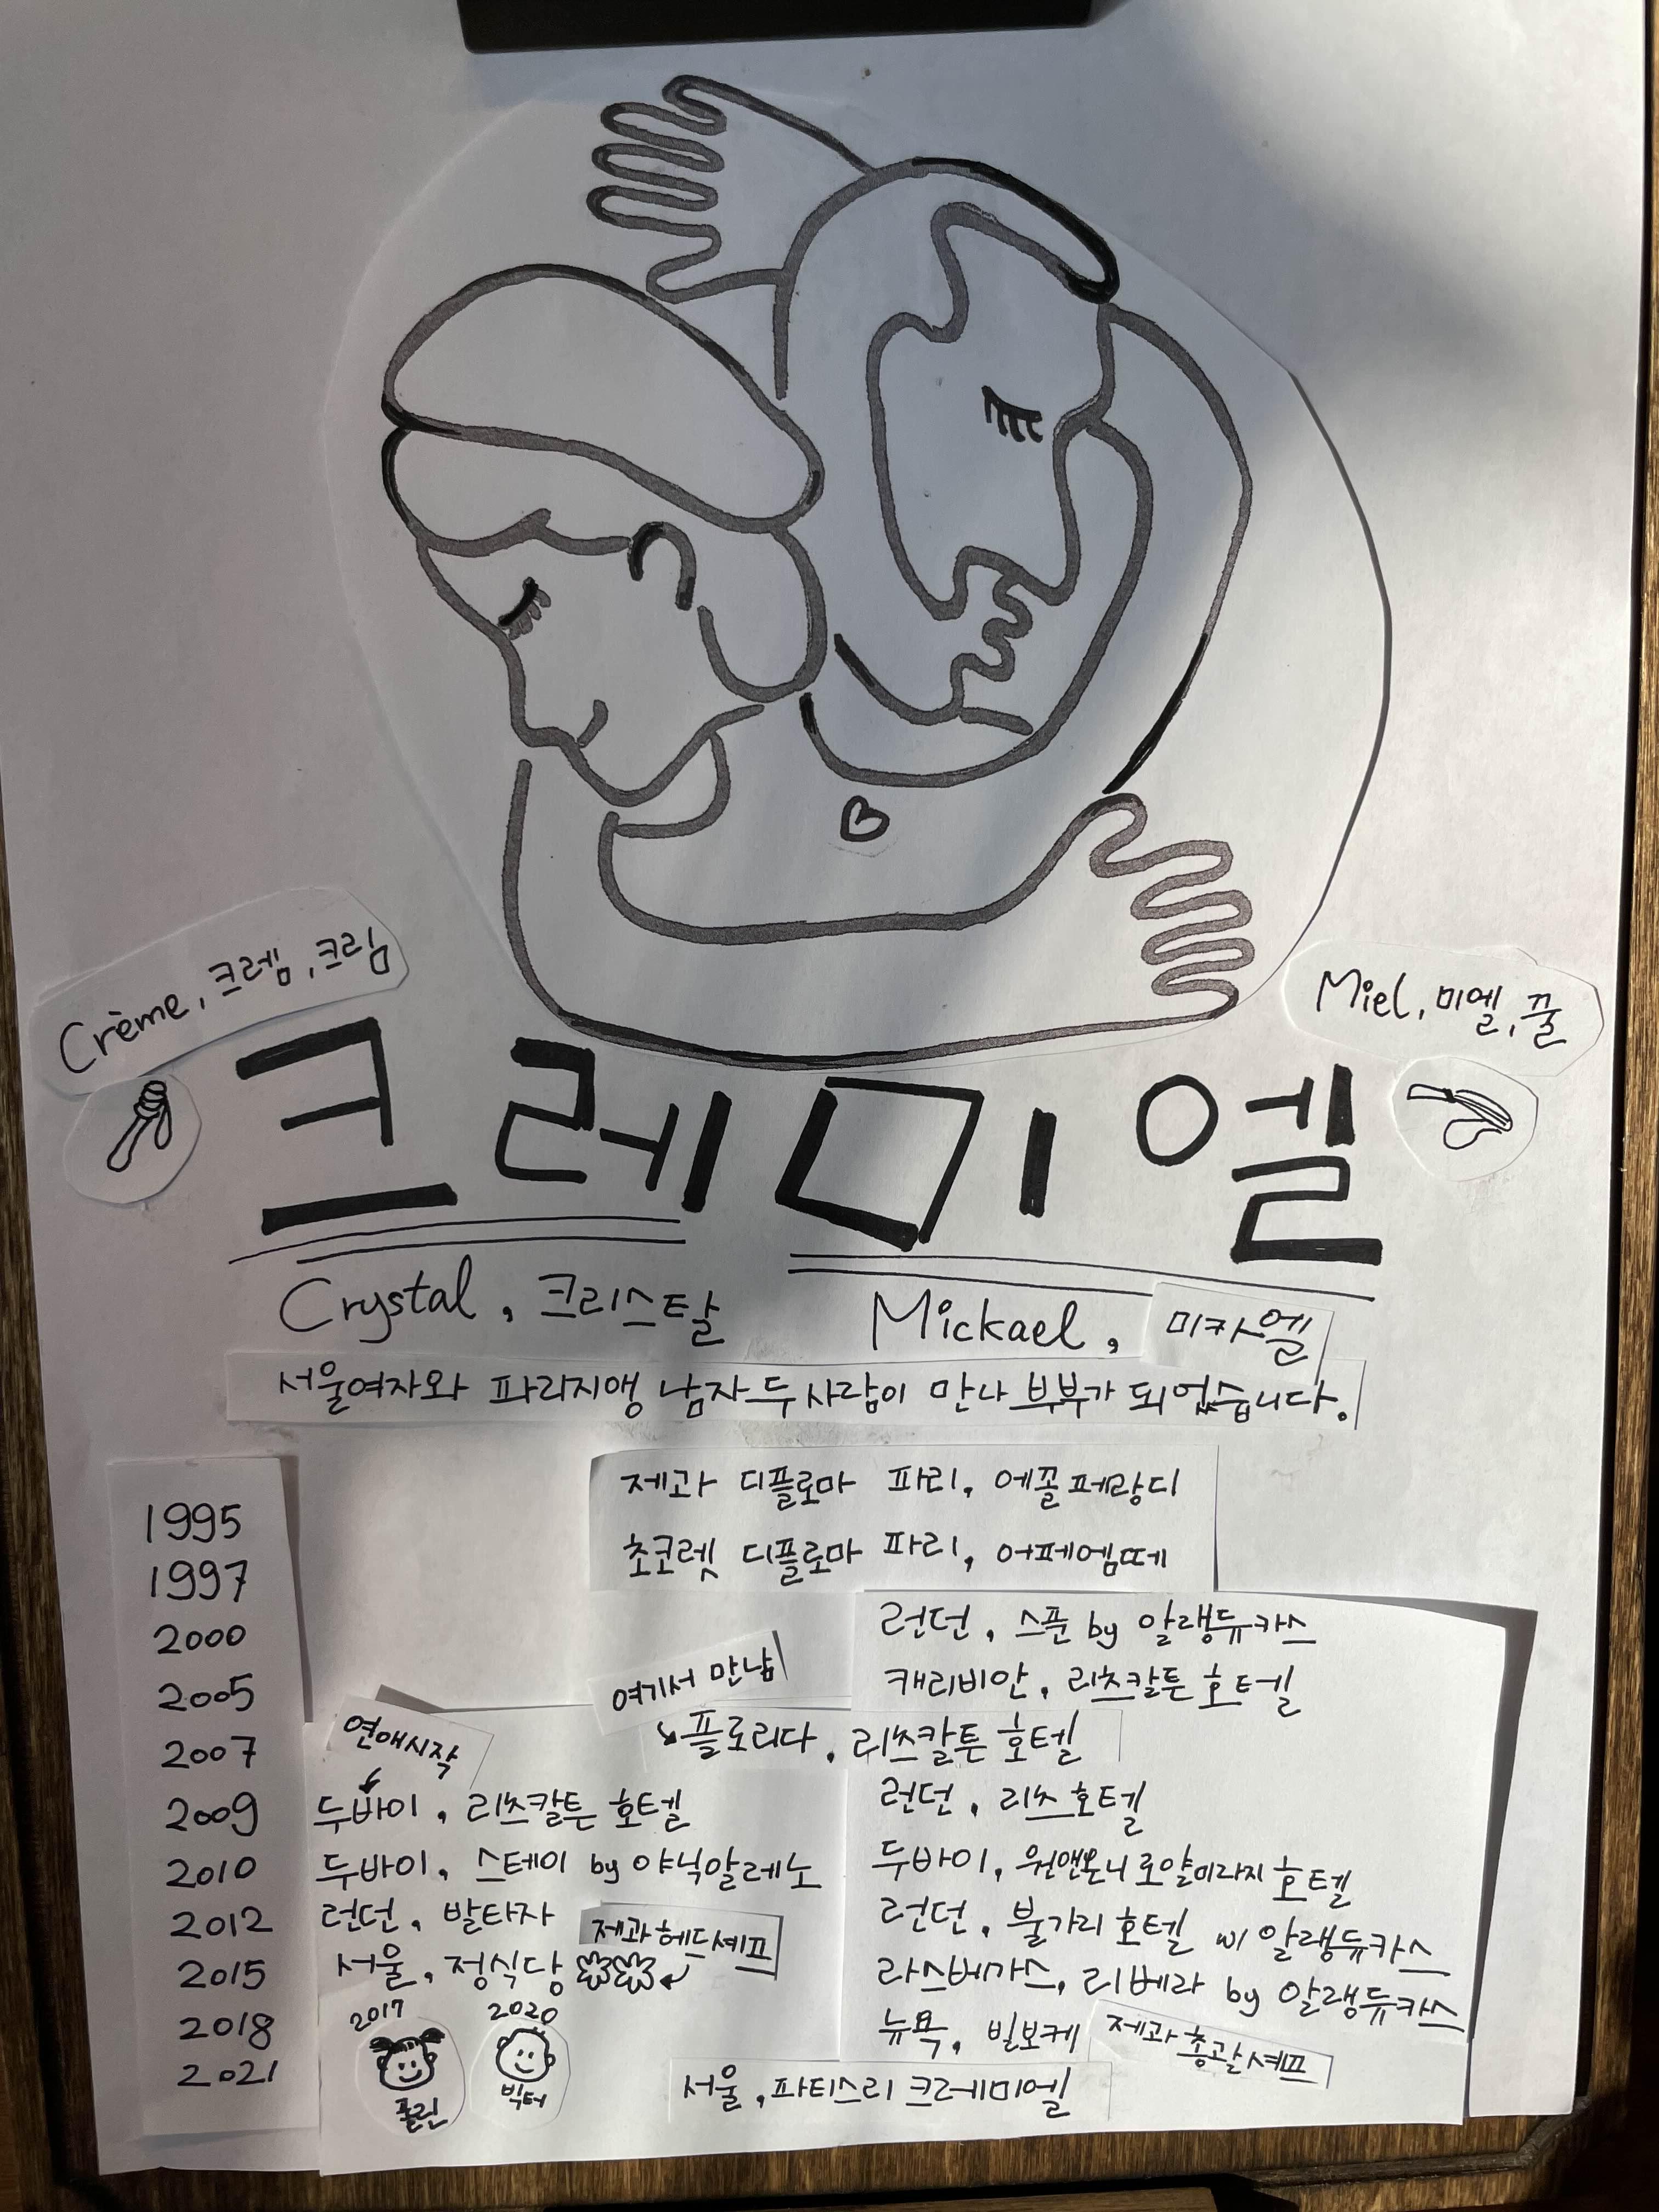 Crème, 크렘, 크림
Miel, 미엘, 꿀
크레미엘
Crystal, 크리스탈
Mickael, 미카엘
서울여자와 파리지앵 남자 두 사람이 만나 부부가 되었습니다.
1995 제과 디플로마 파리, 에꼴페랑디
1997 초코렛 디플로마 파리, 어페엠떼
2000 런던, 스푼 by 알랭듀카스
2005 캐리비안, 리츠칼튼 호텔
여기서 만남
2007 플로리다, 리츠칼튼 호텔
연애시작
2009 두바이, 리츠칼튼 호텔 런던, 리츠호텔
2010 두바이, 스테이 by 야닉알레노 두바이, 원앤온니 로얄미라지 호텔
2012 런던, 발타자 런던, 불가리 호텔 w/ 알랭듀카스
제과헤드셰프
2015 서울, 정식당 라스베가스, 리베라 by 알랭듀카스
2018 뉴욕, 빌보케 제과 총괄셰프
2017 2020
폴린 빅터
2021 서울, 파티스리 크레미엘